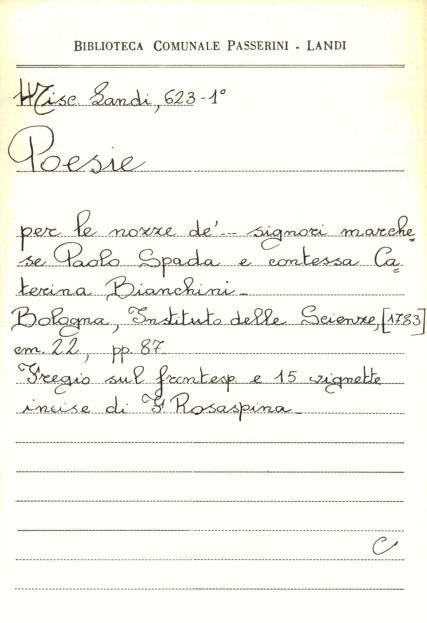 BIBLIOTECA COMUNALE PASSERINI - LANDI
Misc. Landi, 623-1°
Poesie
per le nozze de'... signori marche=
se Paolo Spada e contessa Ca=
terina Bianchini_
Bologna, Instituto delle Scienze, [1783]
cm. 22, pp. 87
Fregio sul frontesp. e 15 vignette
incise di F. Rosaspina_
C